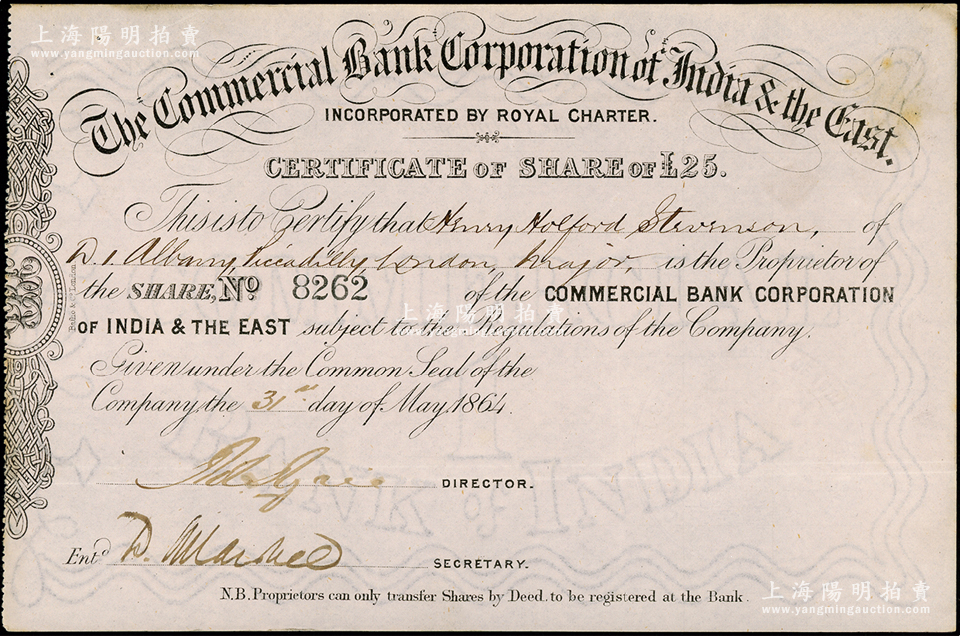 上海陽明拍賣
www.yangmingauction.com
The Commercial Bank Corporation of India & the East.
INCORPORATED BY ROYAL CHARTER.
CERTIFICATE OF SHARE OF £25.
This is to Certify that Henry Holford Stevenson, of
D.1. Albany, Piccadilly, London, Major, is the Proprietor of
the SHARE, No 8262 of the COMMERCIAL BANK CORPORATION
OF INDIA & THE EAST subject to the Regulations of the Company.
上海陽明拍賣
www.yangmingauction.com
Given under the Common Seal of the
Company, the 31st day of May, 1864.
DIRECTOR.
Entd D. SECRETARY.
BANK of INDIA
N.B. Proprietors can only transfer Shares by Deed, to be registered at the Bank.
上海陽明拍賣
www.yangmingauction.com